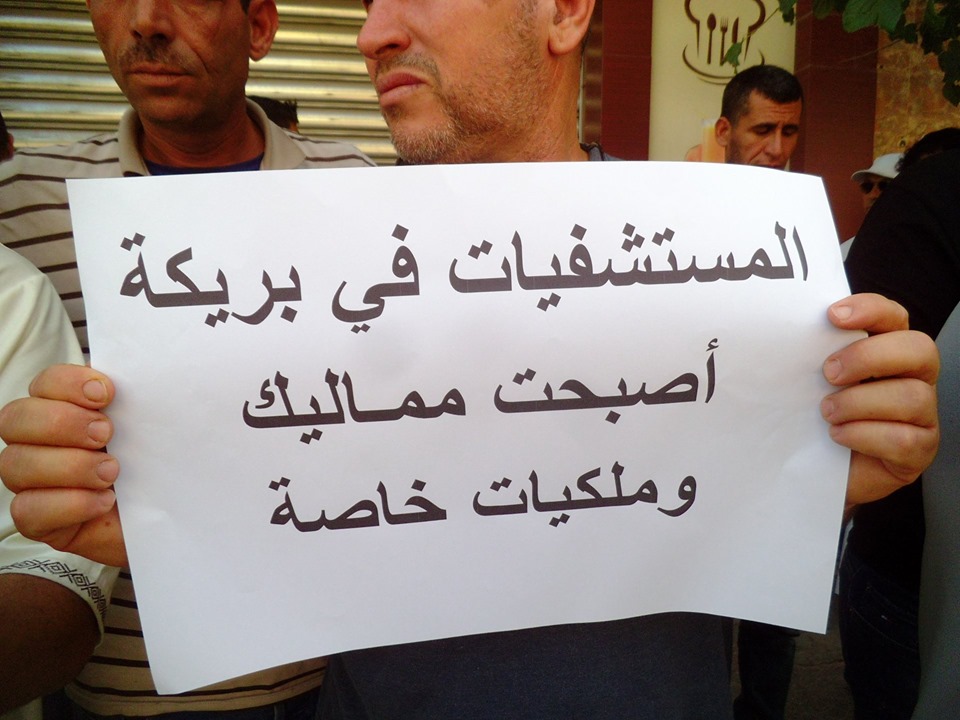 المستشفيات في بريكة
أصبحت ممـاليك
وملكيات خاصة